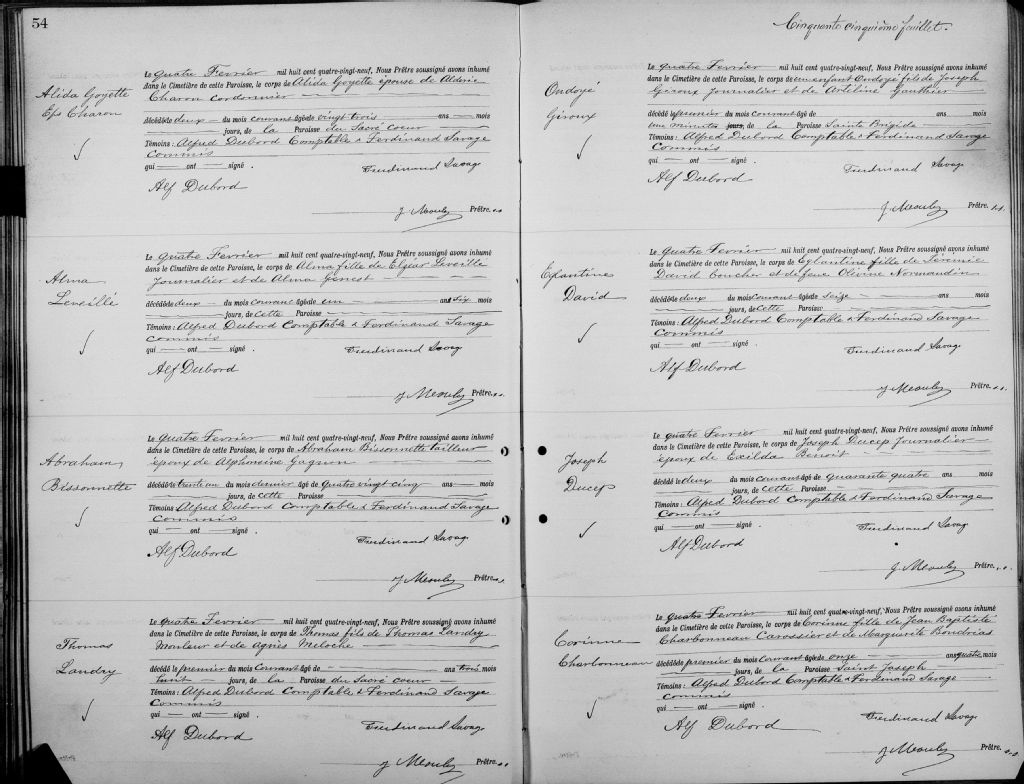 54
Alida Goyette
Eps Charon
Le quatre Fevrier mil huit cent quatre-vingt-neuf, Nous Prêtre soussigné avons inhumé
dans le Cimetière de cette Paroisse, le corps de Alida Goyette épouse de Alderic
Charon cordonnier
décédée deux du mois courant âgée de vingt trois ans mois
jours, de la Paroisse du Sacré coeur
Témoins : Alfred Dubord Comptable & Ferdinand Savage
Commis
qui ont signé .
Ferdinand Savage
Alf Dubord
Prêtre.
Alma
Leveillé
Le quatre Fevrier mil huit cent quatre-vingt-neuf, Nous Prêtre soussigné avons inhumé
dans le Cimetière de cette Paroisse, le corps de Alma fille de Elzéar Leveille
Journalier et de Alma
décédée deux du mois courant âgée de un ans six mois
jours, de cette Paroisse
Témoins : Alfred Dubord Comptable & Ferdinand Savage
Commis
qui ont signé .
Ferdinand Savage
Alf Dubord
Prêtre.
Abraham
Bissonnette
Le quatre Fevrier mil huit cent quatre-vingt-neuf, Nous Prêtre soussigné avons inhumé
dans le Cimetière de cette Paroisse, le corps de Abraham Bissonnette tailleur
époux de Alphonsine Gagnon
décédé le trente un du mois dernier âgé de quatre vingt cinq ans mois
jours, de cette Paroisse
Témoins Alfred Dubord Comptable & Ferdinand Savage
Commis
qui ont signé .
Ferdinand Savage
Alf Dubord
Prêtre.
Thomas
Landry
Le quatre Fevrier mil huit cent quatre-vingt-neuf, Nous Prêtre soussigné avons inhumé
dans le Cimetière de cette Paroisse, le corps de Thomas fils de Thomas Landry
Mouleur et de Agnès Meloche
décédé le premier du mois courant âgé de ans trois mois
jours, de la Paroisse du Sacré coeur
Témoins : Alfred Dubord Comptable & Ferdinand Savage
Commis
qui ont signé .
Ferdinand Savage
Alf Dubord
Prêtre.
Cinquante cinquième feuillet.
Ondoyé
Giroux
Le quatre Fevrier mil huit cent quatre-vingt-neuf, Nous Prêtre soussigné avons inhumé
dans le Cimetière de cette Paroisse, le corps de un enfant Ondoyé fils de Joseph
Giroux Journalier et de Gauthier
décédé le premier du mois courant âgé de ans mois
minutes jours, de la Paroisse Sainte Brigide
Témoins : Alfred Dubord Comptable & Ferdinand Savage
Commis
qui ont signé .
Ferdinand Savage
Alf Dubord
Prêtre.
David
Le quatre Fevrier mil huit cent quatre-vingt-neuf, Nous Prêtre soussigné avons inhumé
dans le Cimetière de cette Paroisse, le corps de Eglantine fille de Jérémie
David Boucher et de feue Olivine Normandin
décédée deux du mois courant âgée de seize ans mois
jours, de cette Paroisse
Témoins : Alfred Dubord Comptable & Ferdinand Savage
Commis
qui ont signé .
Ferdinand Savage
Alf Dubord
Prêtre.
Joseph
Ducep
Le quatre Fevrier mil huit cent quatre-vingt-neuf, Nous Prêtre soussigné avons inhumé
dans le Cimetière de cette Paroisse, le corps de Joseph Ducep Journalier
époux de Exilda Benoit
décédé le deux du mois courant âgé de quarante quatre ans mois
jours, de cette Paroisse
Témoins : Alfred Dubord Comptable & Ferdinand Savage
Commis
qui ont signé .
Ferdinand Savage
Alf Dubord
Prêtre.
Corinne
Charbonneau
Le quatre Fevrier mil huit cent quatre-vingt-neuf, Nous Prêtre soussigné avons inhumé
dans le Cimetière de cette Paroisse, le corps de Corinne fille de Jean Baptiste
Charbonneau Carossier et de Marguerite Boudrias
décédée premier du mois courant âgée de onze ans quatre mois
jours, de la Paroisse Saint Joseph
Témoins : Alfred Dubord Comptable & Ferdinand Savage
Commis
qui ont signé .
Ferdinand Savage
Alf Dubord
Prêtre.